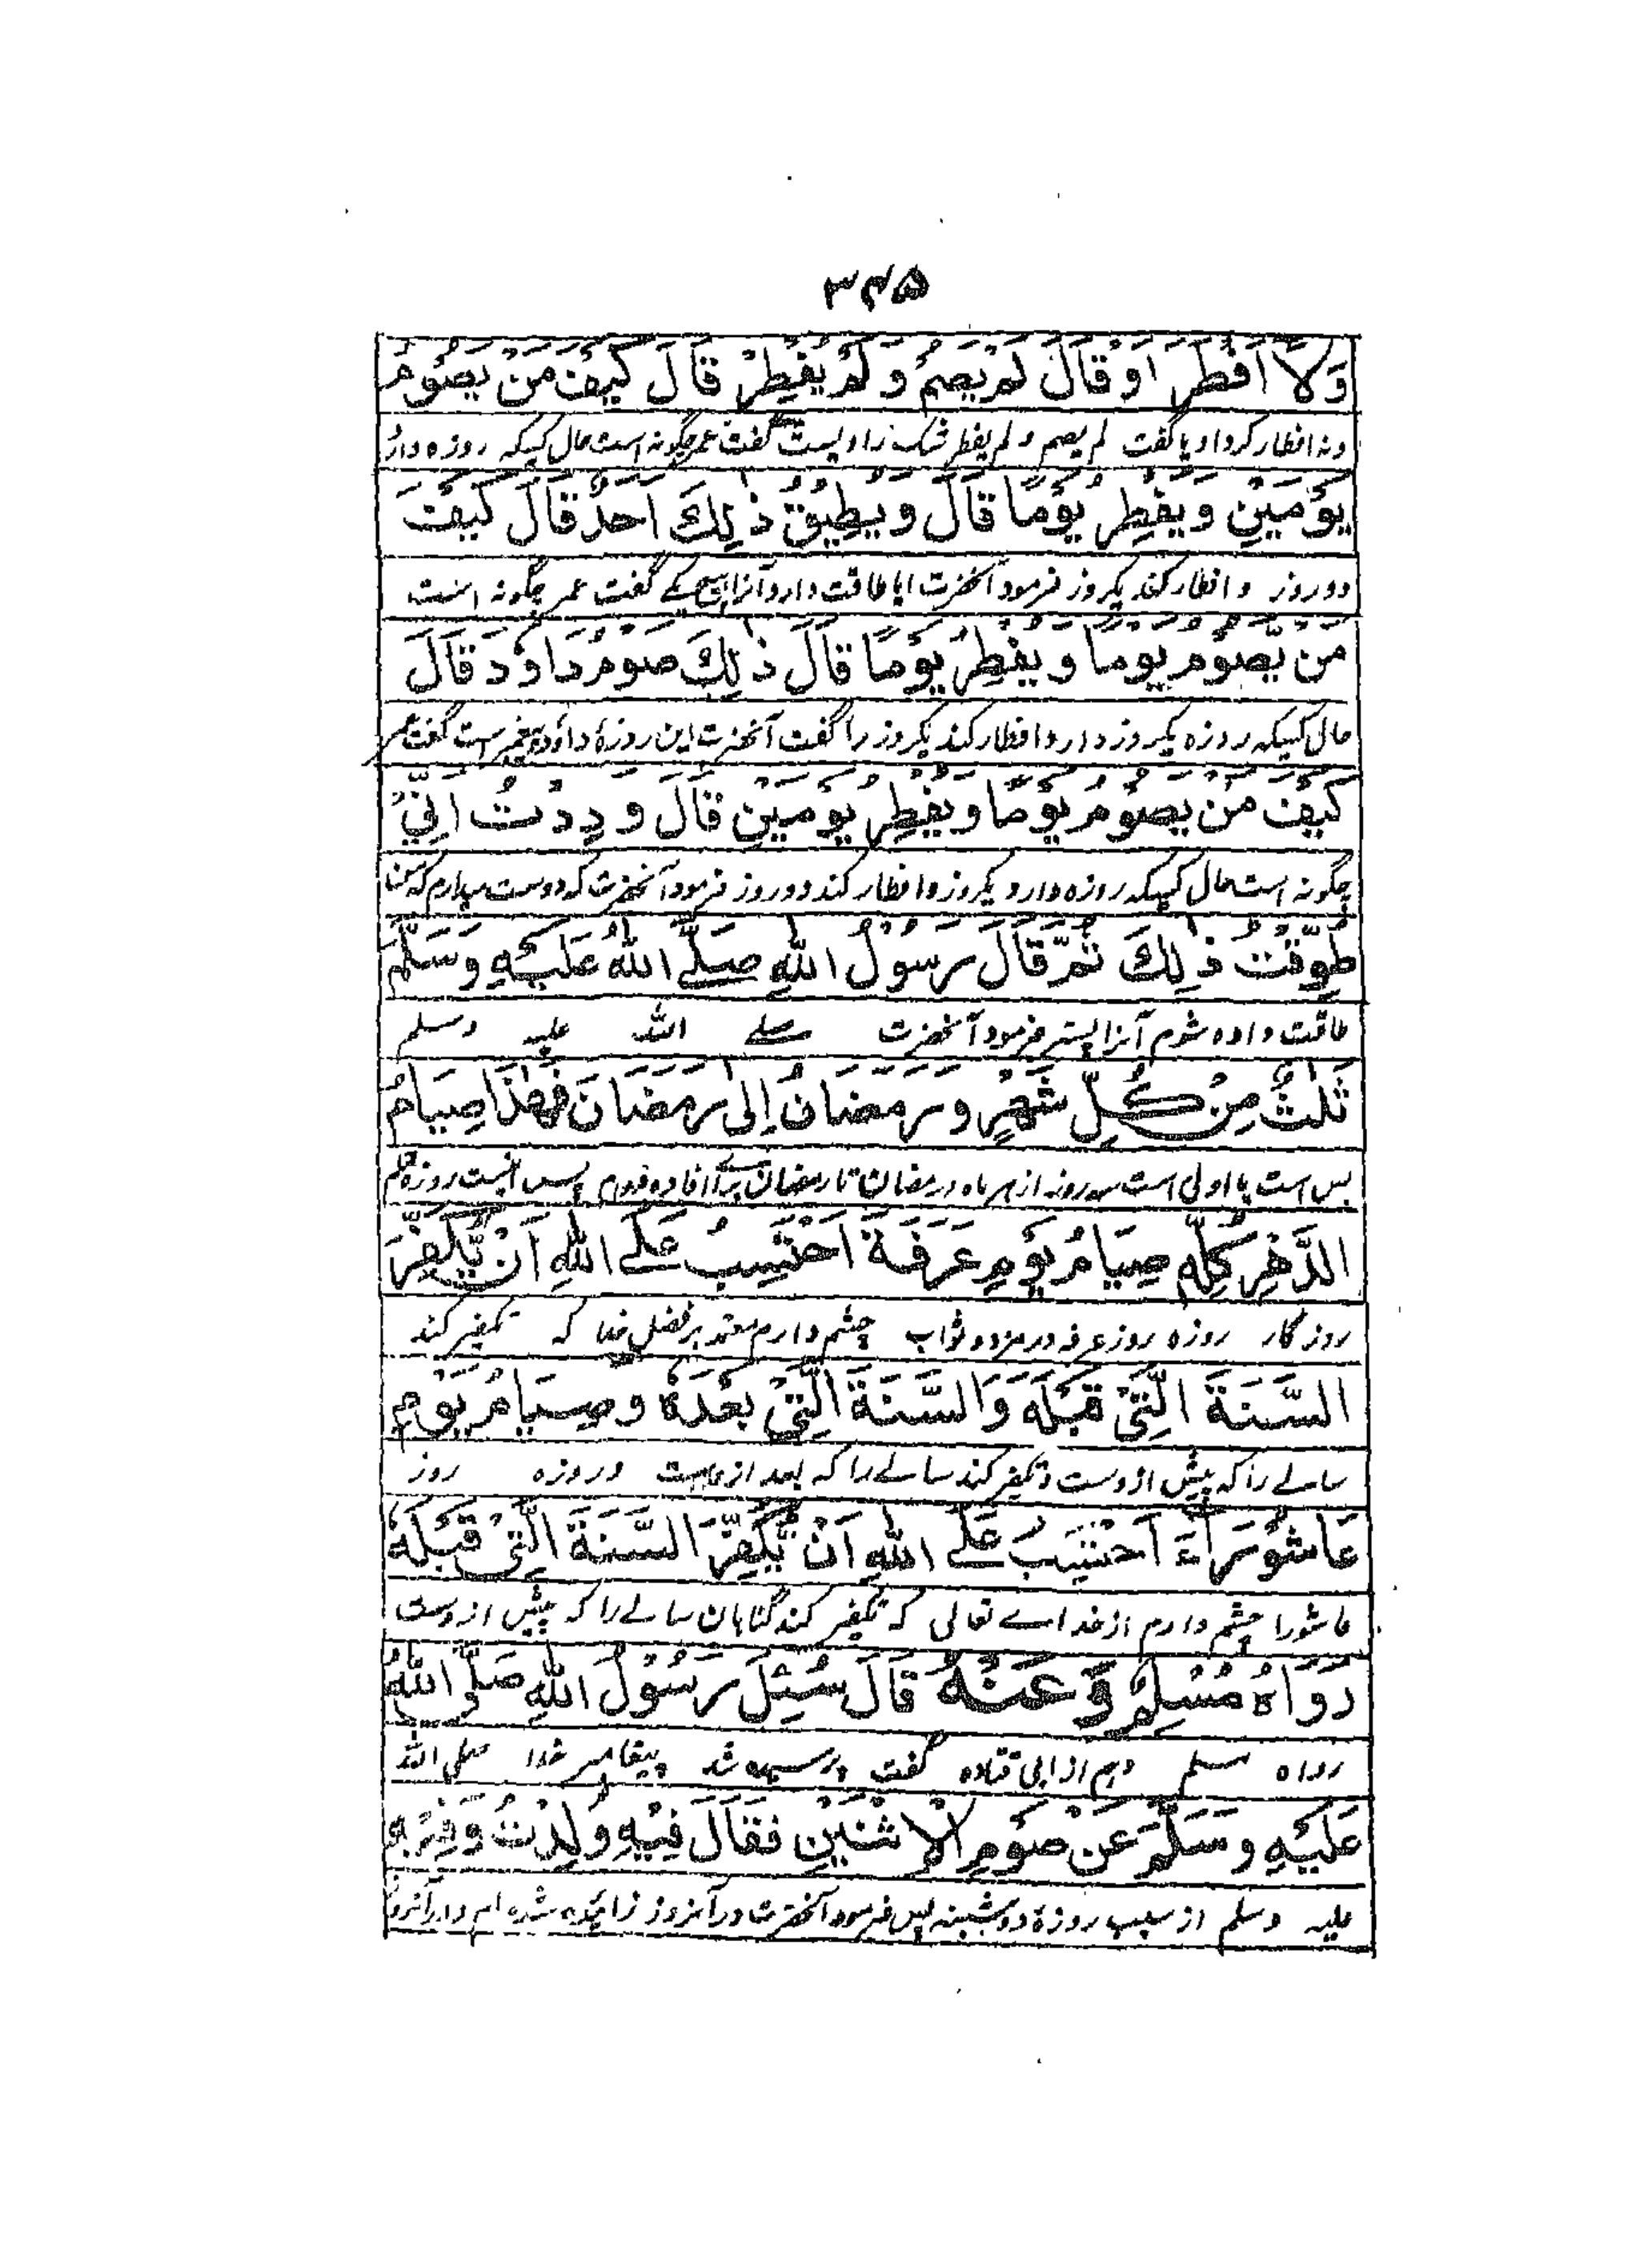 ۳۴۵
وَلَا أَفْطَرَ أَوْ قَالَ لَمْ يَصُمْ وَلَمْ يُفْطِرْ قَالَ كَيْفَ مَنْ يَصُوْمُ
ونه افطار کرد او یا گفت لم یصم و لم یفطر شک راویست گفت عمر چگونه است حال کسیکه روزه دارد
يَوْمَيْنِ وَيُفْطِرُ يَوْمًا قَالَ وَيُطِيْقُ ذٰلِكَ أَحَدٌ قَالَ كَيْفَ
دو روز و افطار کند یکروز فرمود آنحضرت ایا طاقت دارد آنرا هیچ یکے گفت عمر چگونه است
مَنْ يَّصُوْمُ يَوْمًا وَيُفْطِرُ يَوْمًا قَالَ ذٰلِكَ صَوْمُ دَاوٗدَ قَالَ
حال کسیکه روزه یکروز دارد و افطار کند یکروز را گفت آنحضرت این روزهٔ داود پیغمبر است گفت عمر
كَيْفَ مَنْ يَصُوْمُ يَوْمًا وَيُفْطِرُ يَوْمَيْنِ قَالَ وَدِدْتُ اَنِّيْ
چگونه است حال کسیکه روزه دارد یکروز و افطار کند دو روز فرمود آنحضرت که دوست میدارم که من
طُوِّقْتُ ذٰلِكَ ثُمَّ قَالَ رَسُوْلُ اللّٰهِ صَلَّے اللّٰهُ عَلَيْهِ وَسَلَّمَ
طاقت داده شوم آنرا پستر فرمود آنحضرت صلے الله علیه وسلم
ثَلٰثٌ مِنْ كُلِّ شَهْرٍ وَرَمَضَانُ إِلٰى رَمَضَانَ فَهٰذَا صِيَامُ
بس است یا اولی است سه روزه از هر ماه و رمضان تا رمضان پس اینست روزه
الدَّهْرِ كُلِّهٖ صِيَامُ يَوْمِ عَرَفَةَ اَحْتَسِبُ عَلَے اللّٰهِ اَنْ يُّكَفِّرَ
روزگار روزه روز عرفه در مزد و ثواب چشم دارم معتمد بر فضل خدا که تکفیر کند
السَّنَةَ الَّتِيْ قَبْلَهٗ وَالسَّنَةَ الَّتِيْ بَعْدَهٗ وَصِيَامُ يَوْمِ
سالے را که پیش ازوست و تکفیر کند سالے را که بعد ازوست و روزه روز
عَاشُوْرَاءَ اَحْتَسِبُ عَلَے اللّٰهِ اَنْ يُّكَفِّرَ السَّنَةَ الَّتِيْ قَبْلَهٗ
عاشورا چشم دارم از خداے تعالی که تکفیر کند گناهان سالے را که پیش ازوست
رَوَاهُ مُسْلِمٌ وَعَنْهُ قَالَ سُئِلَ رَسُوْلُ اللّٰهِ صَلَّى اللّٰهُ
رواه مسلم وهم از ابی قتاده گفت پرسیده شد پیغامبر خدا صلی الله
عَلَيْهِ وَسَلَّمَ عَنْ صَوْمِ الْاِثْنَيْنِ فَقَالَ فِيْهِ وُلِدْتُ وَفِيْهِ
علیه وسلم از سبب روزهٔ دوشنبه پس فرمود آنحضرت در آنروز زائیده شده ام و در آنروز